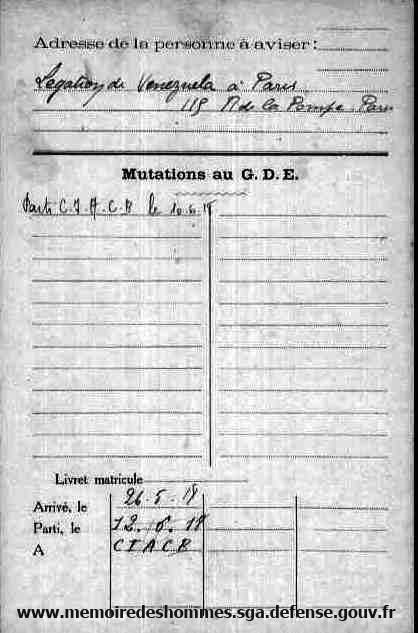 Adresse de la personne à aviser :
Legation de Venezuela à Paris
115 R de la Pompe. Paris
Mutations au G. D. E.
Parti C. I. A. C. B le 10.6.18
Livret matricule
Arrivé, le 26.5.18
Parti, le 12.6.18
A CIACB
www.memoiredeshommes.sga.defense.gouv.fr